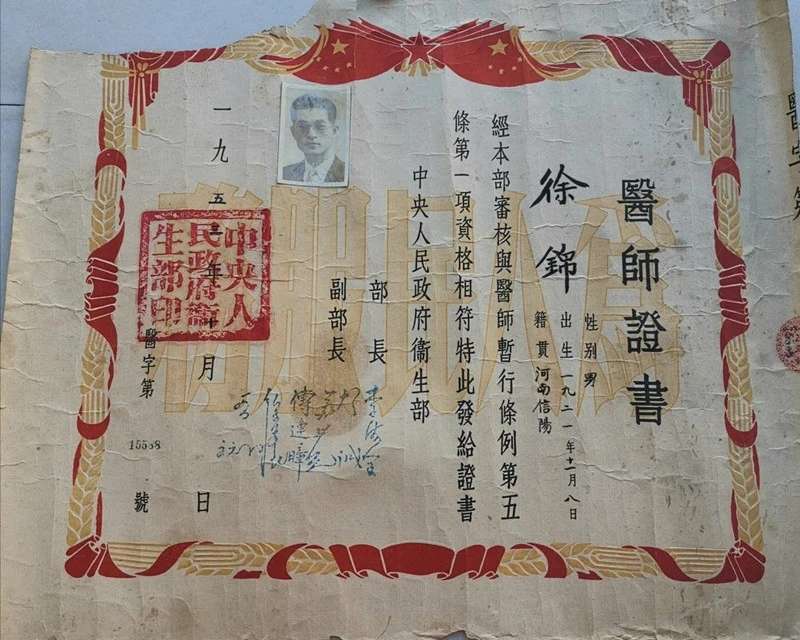 醫師證書
徐錦
性别男
出生一九二一年十一月八日
籍貫河南信陽
經本部審核與醫師暫行條例第五
條第一項資格相符特此發給證書
中央人民政府衞生部
部長
副部長
一九五二年 月 日
中央人民政府衞生部印
醫字第
號
爲人民服務
醫字第